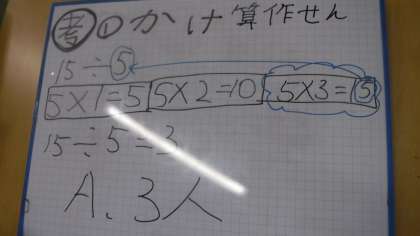 考①かけ算作せん
15÷5
5×1=5 5×2=10 5×3=15
15÷5=3
A、3人